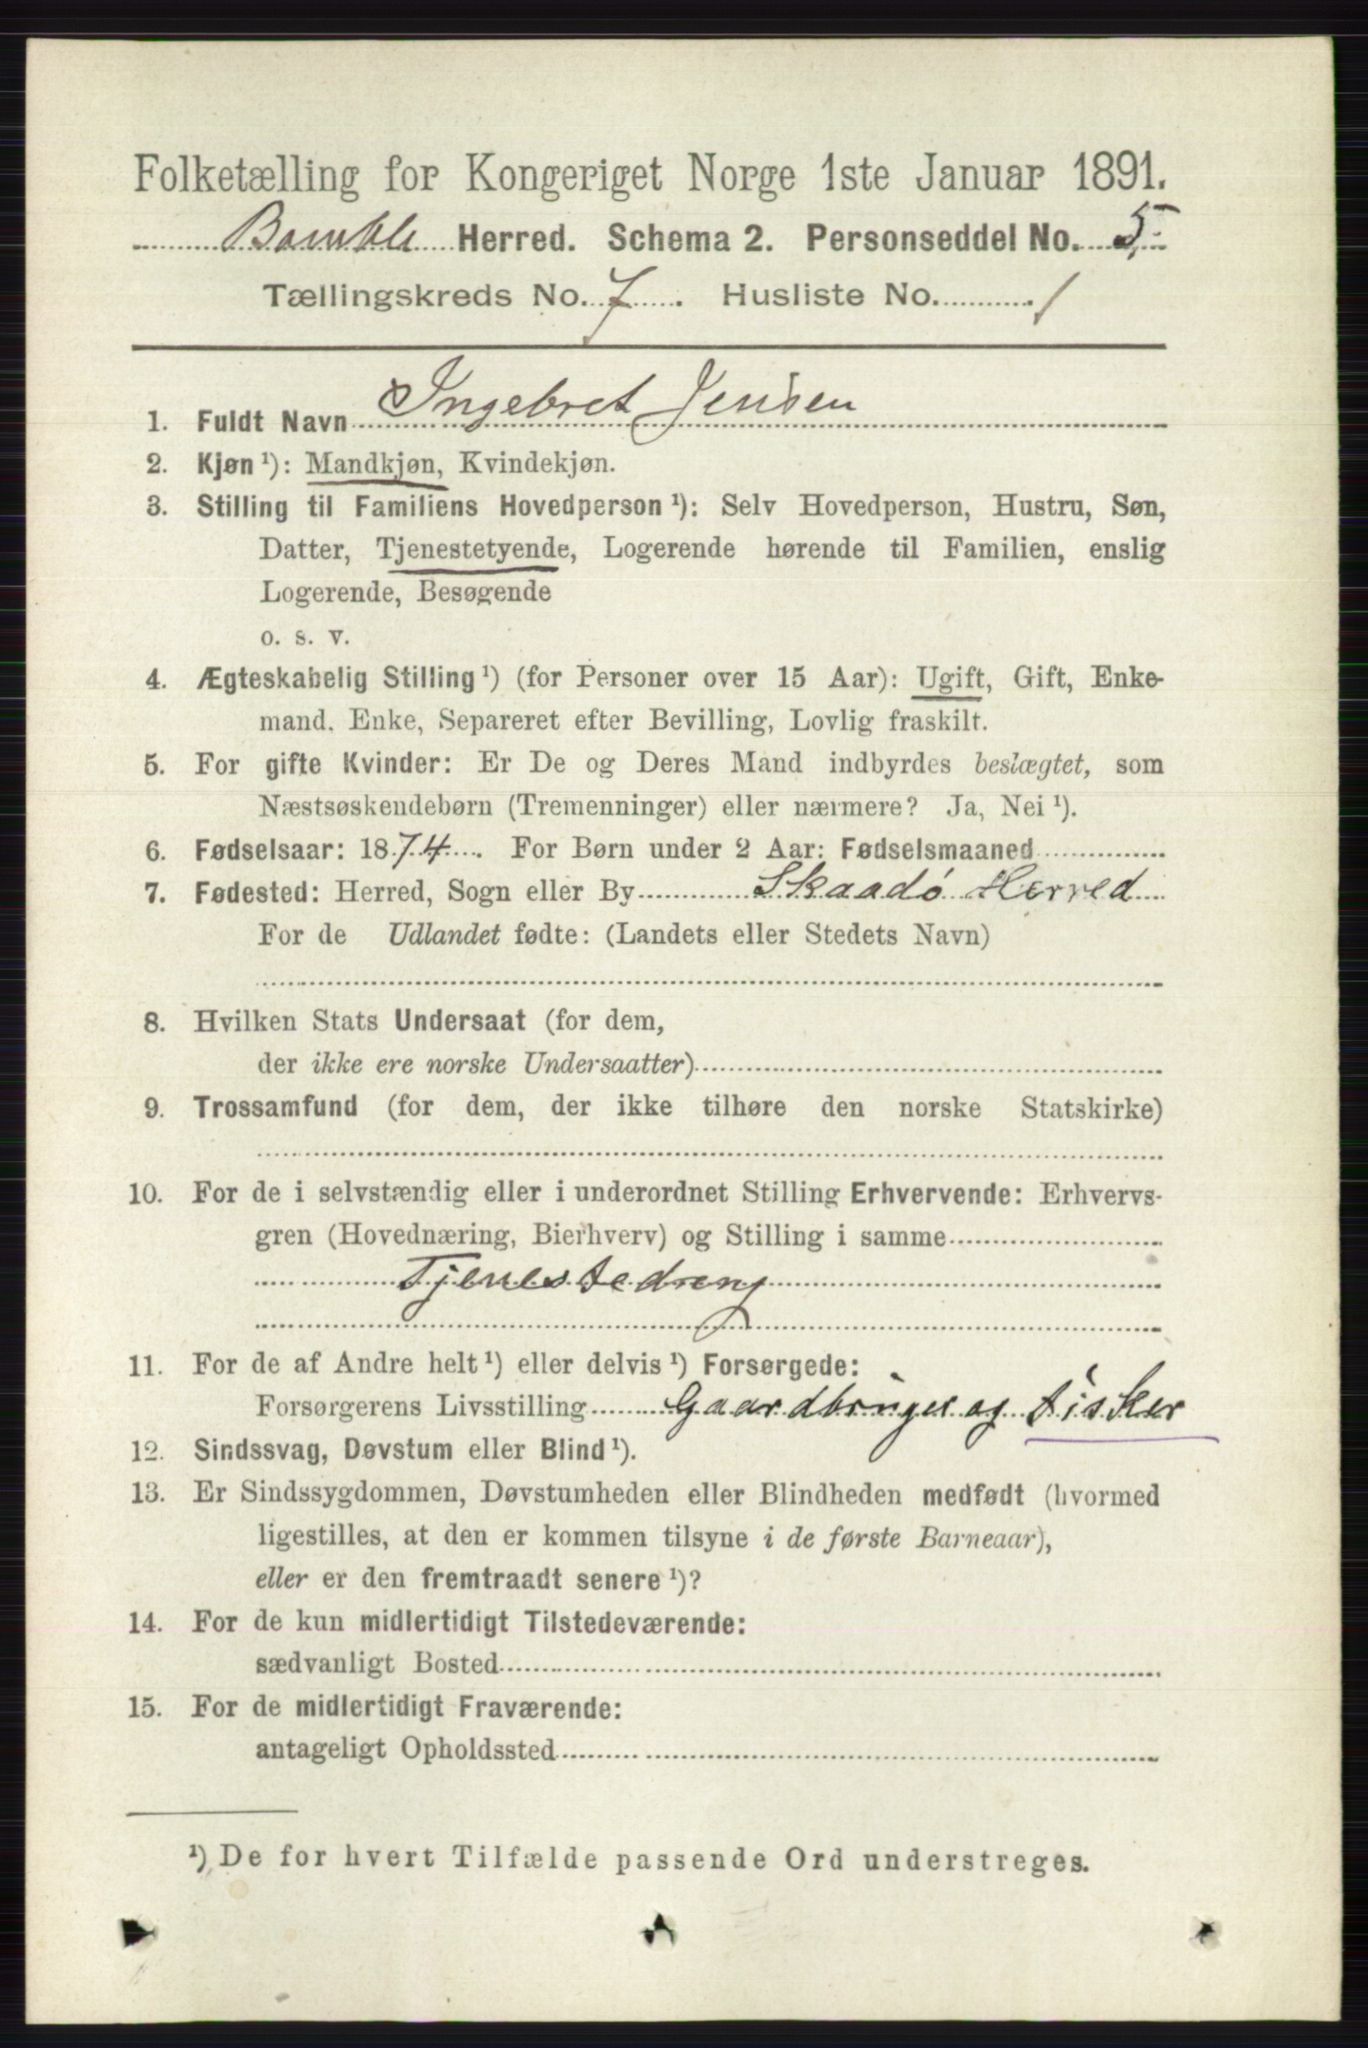 Folketælling for Kongeriget Norge 1ste Januar 1891.
Bamble Herred. Schema 2. Personseddel No. 5.
Tællingskreds No. 7. Husliste No. 1
1. Fuldt Navn Ingebret Jensen
2. Kjøn¹): Mandkjøn, Kvindekjøn.
3. Stilling til Familiens Hovedperson¹): Selv Hovedperson, Hustru, Søn,
Datter, Tjenestetyende, Logerende hørende til Familien, enslig
Logerende, Besøgende
o. s. v.
4. Ægteskabelig Stilling¹) (for Personer over 15 Aar): Ugift, Gift, Enke-
mand, Enke, Separeret efter Bevilling, Lovlig fraskilt.
5. For gifte Kvinder: Er De og Deres Mand indbyrdes beslægtet, som
Næstsøskendebørn (Tremenninger) eller nærmere? Ja, Nei¹).
6. Fødselsaar: 1874. For Børn under 2 Aar: Fødselsmaaned
7. Fødested: Herred, Sogn eller By Skaadø Herred
For de Udlandet fødte: (Landets eller Stedets Navn)
8. Hvilken Stats Undersaat (for dem,
der ikke ere norske Undersaatter)
9. Trossamfund (for dem, der ikke tilhøre den norske Statskirke)
10. For de i selvstændig eller i underordnet Stilling Erhvervende: Erhvervs-
gren (Hovednæring, Bierhverv) og Stilling i samme
Tjenestedreng
11. For de af Andre helt¹) eller delvis¹) Forsørgede:
Forsørgerens Livsstilling Gaardbruger og Fisker
12. Sindssvag, Døvstum eller Blind¹).
13. Er Sindssygdommen, Døvstumheden eller Blindheden medfødt (hvormed
ligestilles, at den er kommen tilsyne i de første Barneaar),
eller er den fremtraadt senere¹)?
14. For de kun midlertidigt Tilstedeværende:
sædvanligt Bosted
15. For de midlertidigt Fraværende:
antageligt Opholdssted
¹) De for hvert Tilfælde passende Ord understreges.